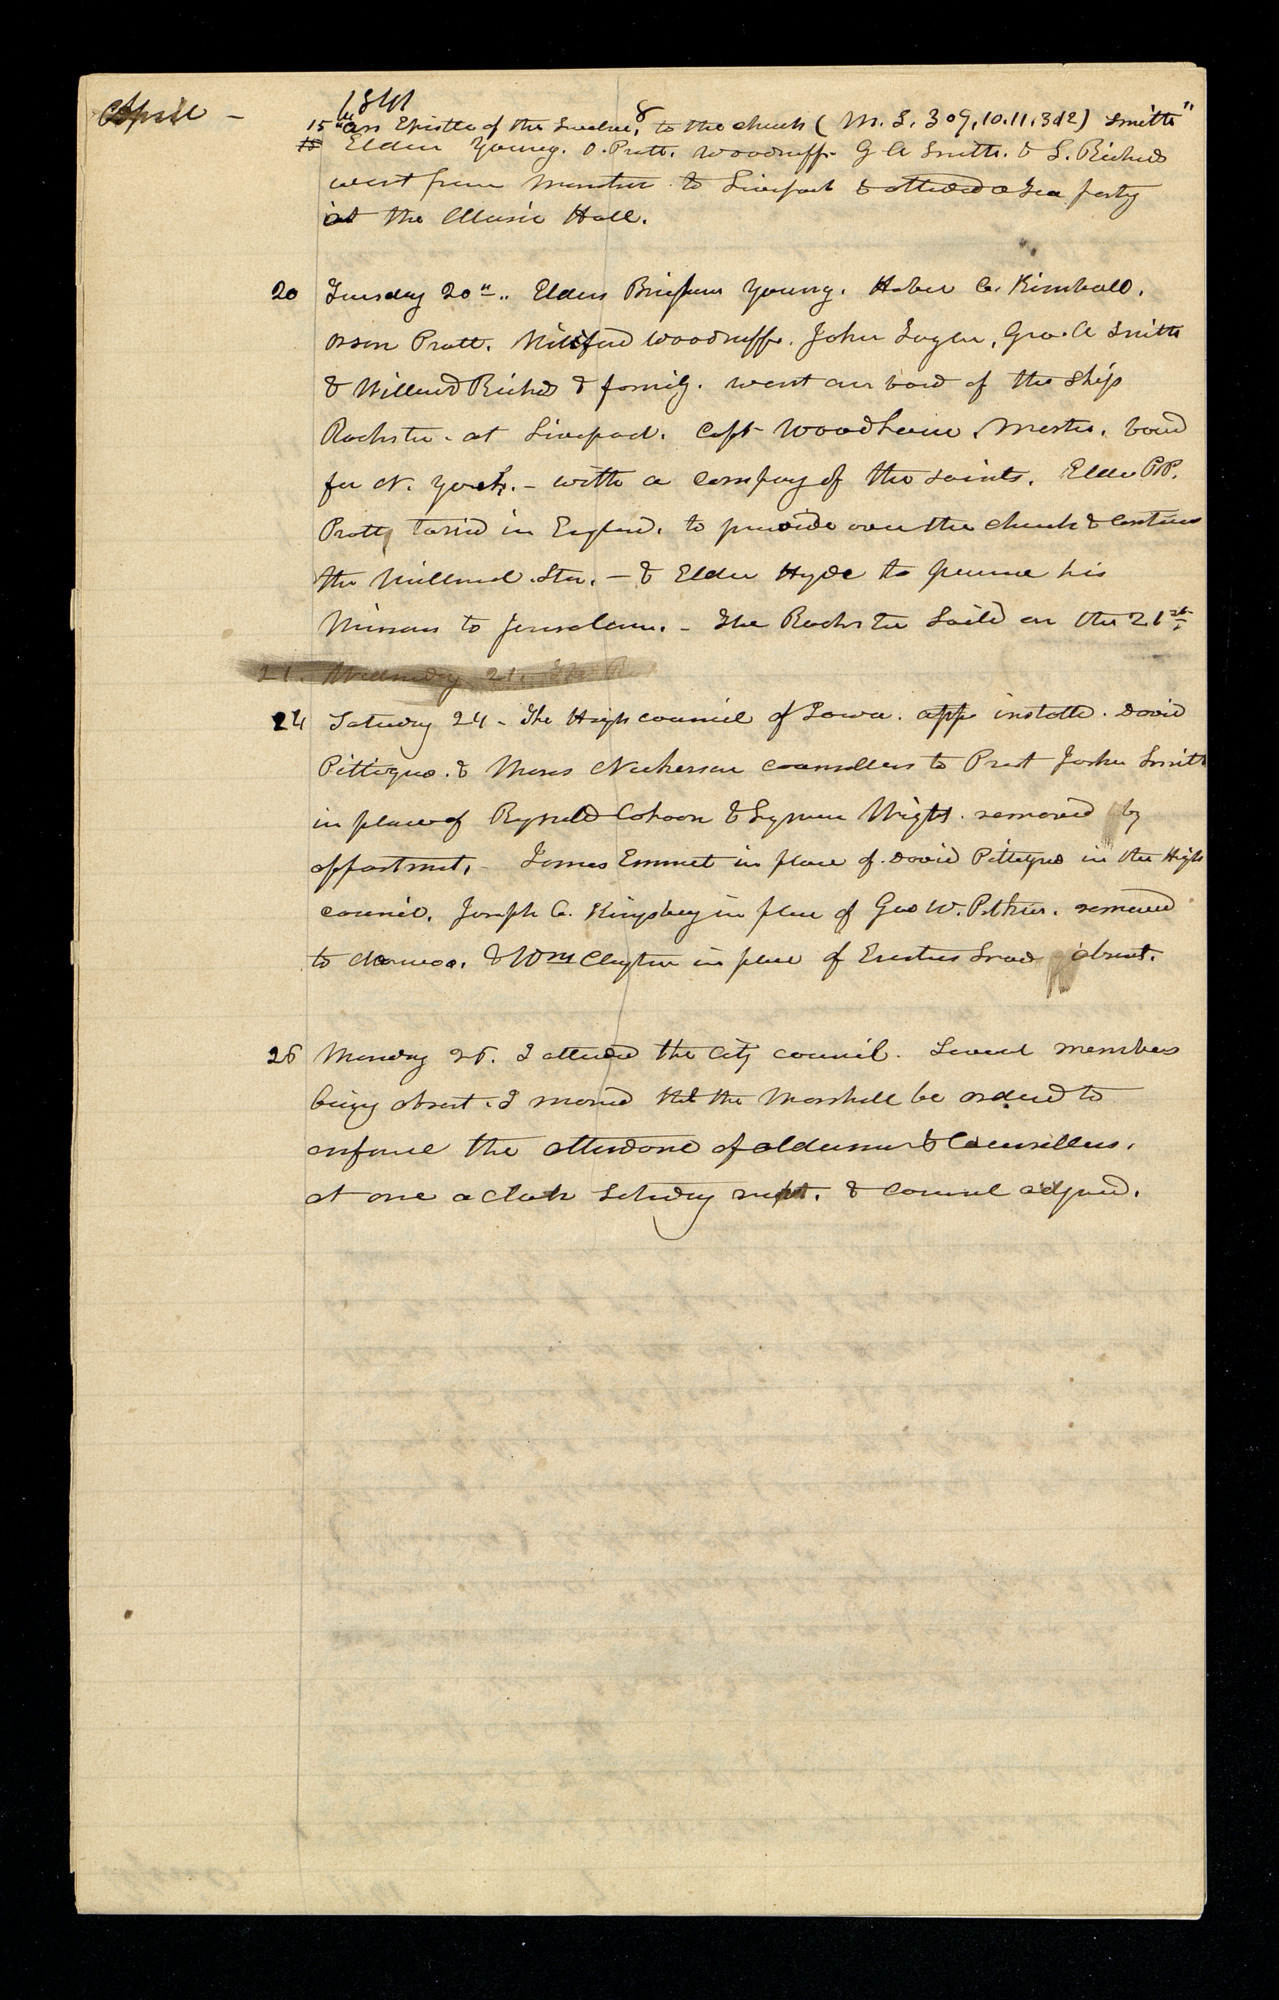 April – 1841
8
15 "An Epistle of the Twelve, to the church ( M. S, 309, 10. 11, 312) Smith"
15 Elder Young. O. Pratt. Woodruff. G A Smith. & L. Richards
went from Manchester to Liverpool & attended a Tea party
at the Music Hall.
20 Tuesday 20th.. Elders Brigham Young. Heber C. Kimball.
Orson Pratt. Willford Woodruff. John Taylor, Geo. A Smith
& Willard Richards & family. went on board of the Ship
Rochester. at Liverpool. Capt Woodhouse, Master. bound
for N. York. – with a company of the saints. Elder P.P.
Pratt, taried in England. to preside over the church & continue
the Millenial Star. – & Elder Hyde to pursue his
Mission to Jerusalem. – The Rochester Saild on the 21st.
21. Wednesday 21. The R
24 Saturday 24 – The High council of Iowa. app installed. David
Pettigrew. & Moses Nickerson counsellors to Prest John Smith
in place of Reynold Cahoon & Lyman Wight. removed by
appointment. – James Emmet in place of David Pettigrew in the High
council. Joseph C. Kingsbury in place of Geo W. Pitkin. removed
to Nauvoo. & Wm Clayton in place of Erastus Snow absent.
26 Monday 26. I attended the city council. Several members
being absent. I moved that the Marshall be ordered to
enforce the attendance of aldermen & Councillors.
at one a clock Saturday next. & council adjourned.